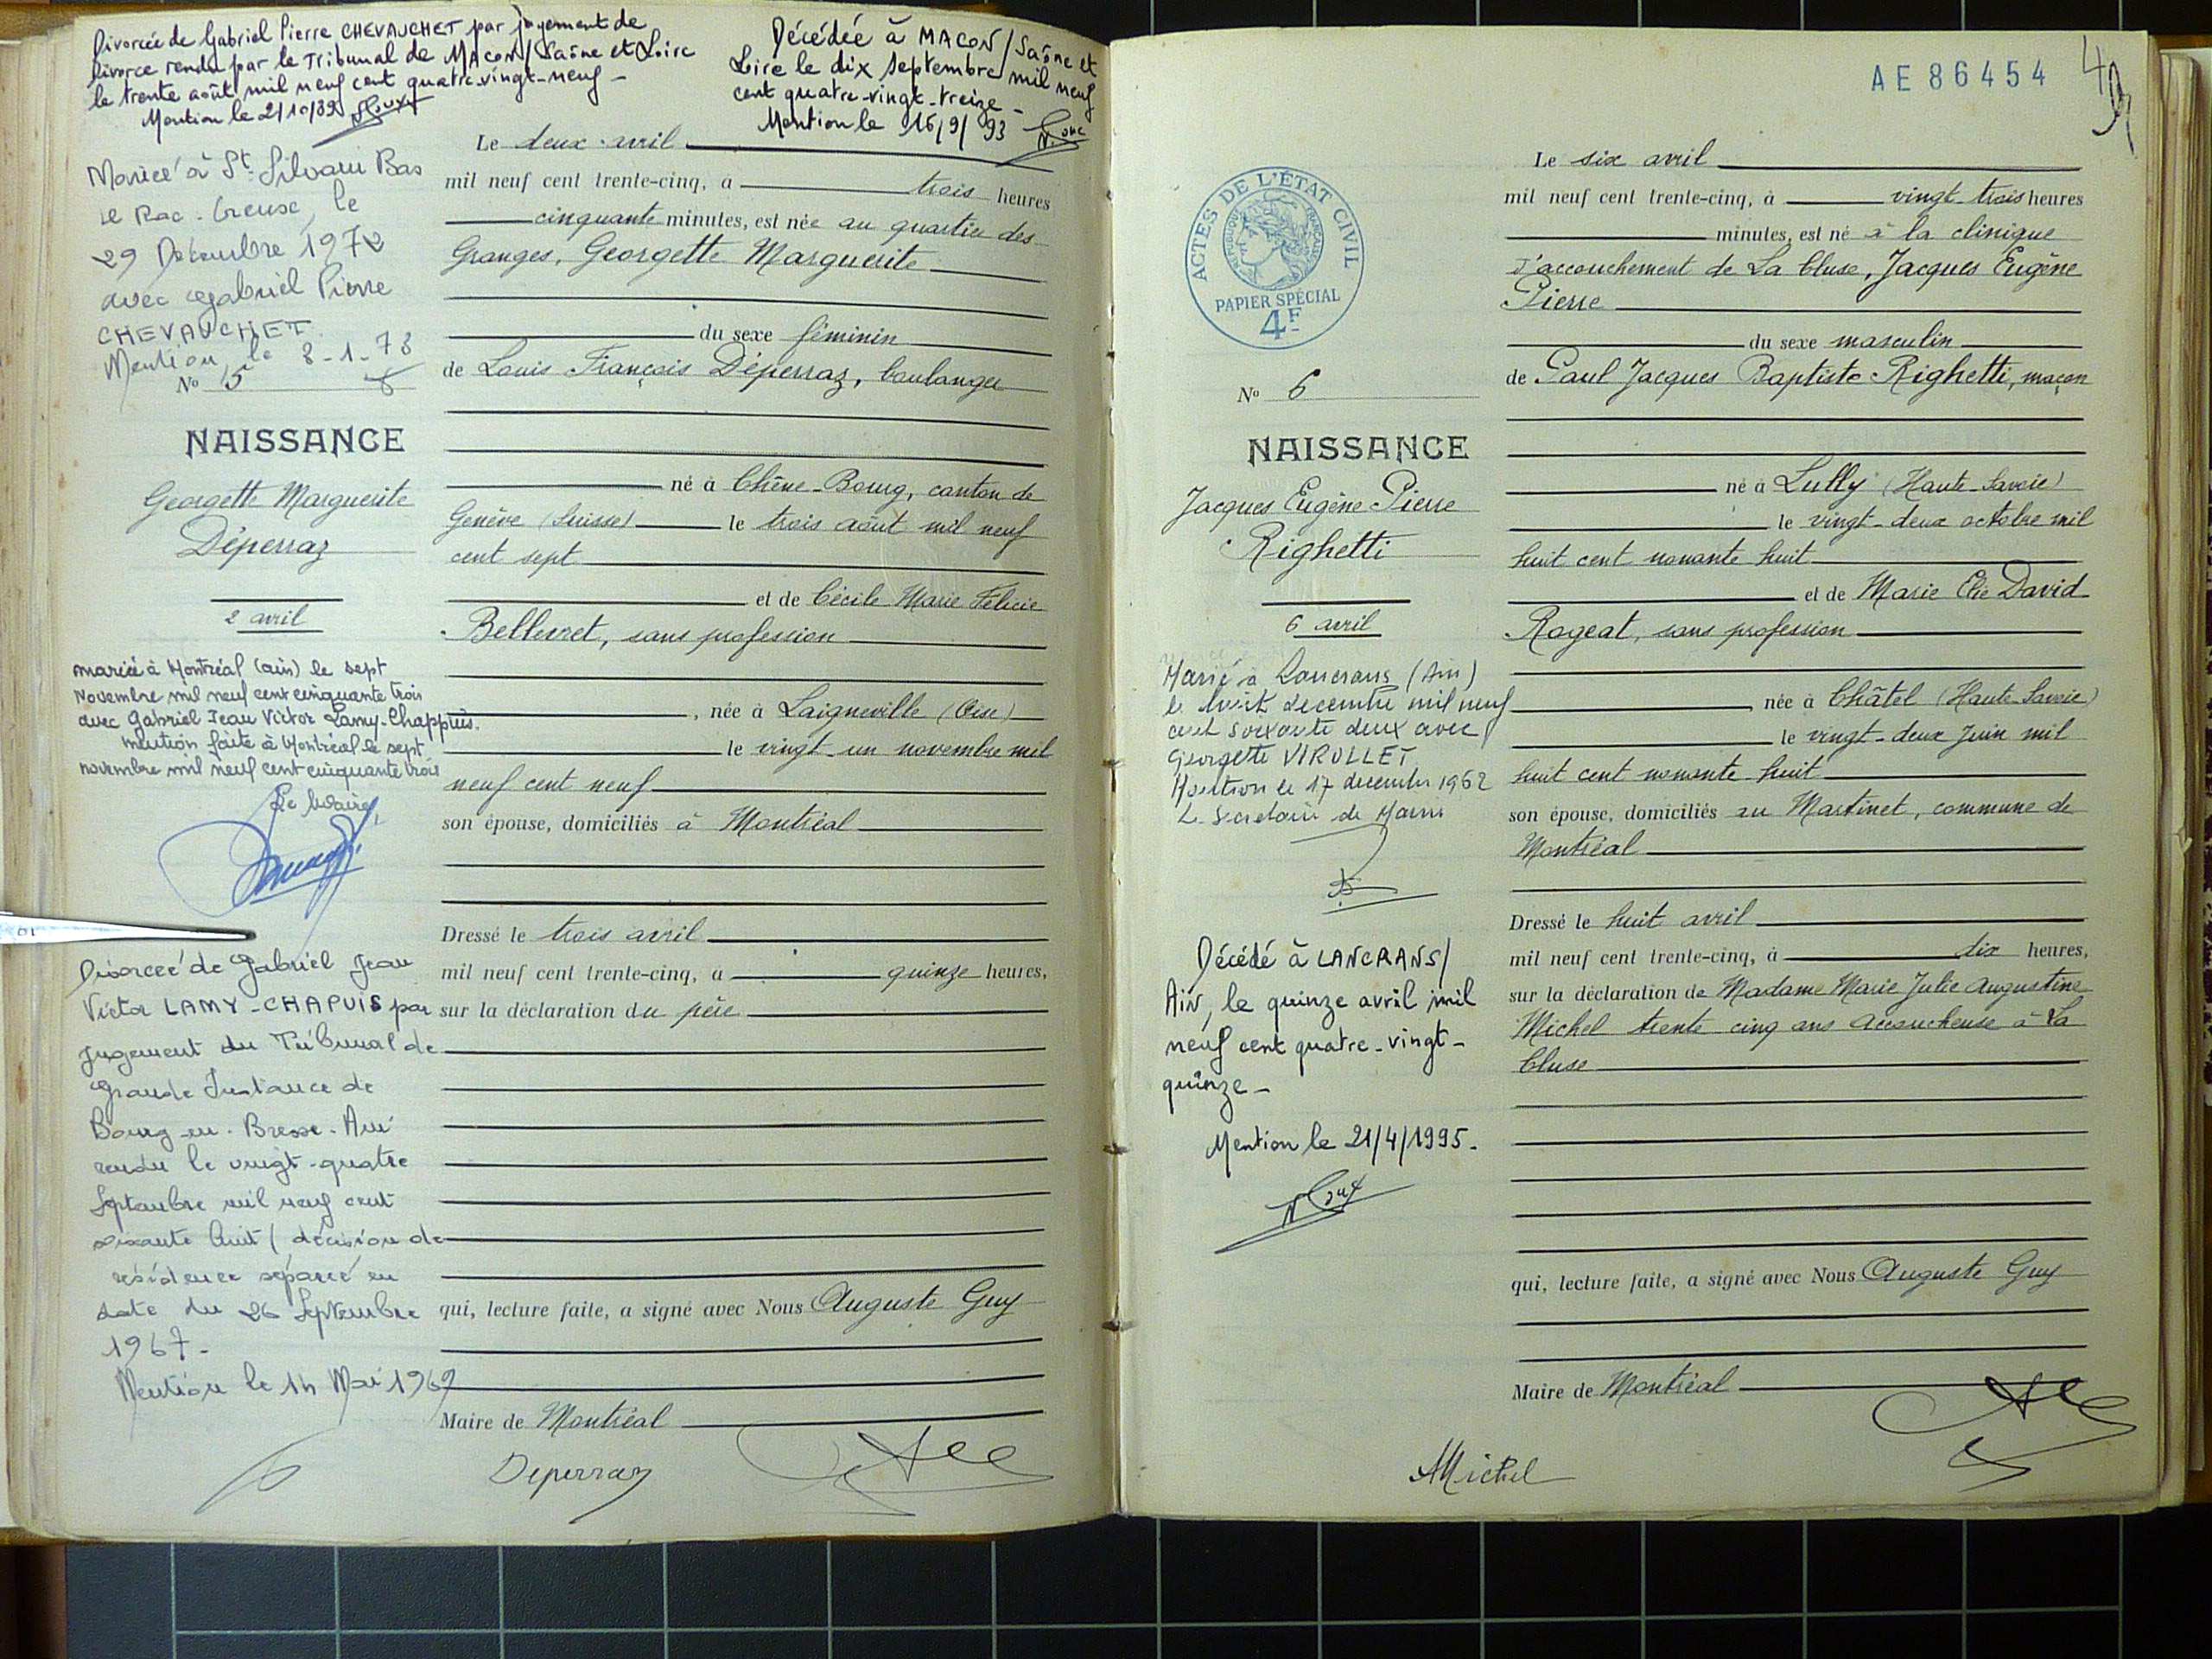 Divorcée de Gabriel Pierre CHEVAUCHET par jugement de
divorce rendu par le Tribunal de MACON/Saône et Loire
le trente août mil neuf cent quatre-vingt-neuf -
Mention le 2/10/89
Décédée à MACON/Saône et
Loire le dix septembre mil neuf
cent quatre-vingt-treize -
Mention le 16/9/93
Mariée à St Silvain Bas
le Roc - Creuse, le
29 Décembre 1972
avec Gabriel Pierre
CHEVAUCHET
Mention le 8-1-73
No 5
NAISSANCE
Georgette Marguerite
Déperraz
2 avril
mariée à Montréal (ain) le sept
novembre mil neuf cent cinquante trois
avec Gabriel Jean Victor Lamy-Chappuis.
mention faite à Montréal le sept
novembre mil neuf cent cinquante trois
Le Maire,
Divorcée de Gabriel Jean
Victor LAMY-CHAPUIS par
jugement du Tribunal de
Grande Instance de
Bourg-en-Bresse-Ain
rendu le vingt-quatre
Septembre mil neuf cent
soixante huit (décision de
résidence séparée en
date du 26 Septembre
1967-
Mention le 14 Mai 1969
Le deux avril
mil neuf cent trente-cinq, à trois heures
cinquante minutes, est née au quartier des
Granges, Georgette Marguerite
du sexe féminin
de Louis François Déperraz, boulanger
né à Chêne-Bourg, canton de
Genève (Suisse) le trois août mil neuf
cent sept
et de Cécile Marie Félicie
Bellevret, sans profession
, née à Laigneville (Oise)
le vingt-un novembre mil
neuf cent neuf
son épouse, domiciliés à Montréal
Dressé le trois avril
mil neuf cent trente-cinq, à quinze heures,
sur la déclaration du père
qui, lecture faite, a signé avec Nous Auguste Guy
Maire de Montréal
Deperraz
AE 86454
49
ACTES DE L'ÉTAT CIVIL
RÉPUBLIQUE FRANÇAISE
PAPIER SPÉCIAL
4F
No 6
NAISSANCE
Jacques Eugène Pierre
Righetti
6 avril
Marié à Lancrans (Ain)
le huit decembre mil neuf
cent soixante deux avec
Georgette VIROLLET
Mention le 17 decembre 1962
Le Secretaire de Mairie
Décédé à LANCRANS/
Ain, le quinze avril mil
neuf cent quatre-vingt-
quinze -
Mention le 21/4/1995.
Le six avril
mil neuf cent trente-cinq, à vingt trois heures
minutes, est né à la clinique
d'accouchement de La Cluse, Jacques Eugène
Pierre
du sexe masculin
de Paul Jacques Baptiste Righetti, maçon
né à Lully (Haute-Savoie)
le vingt-deux octobre mil
huit cent nonante huit
et de Marie Elie David
Rogeat, sans profession
née à Châtel (Haute Savoie)
le vingt-deux Juin mil
huit cent nonante-huit
son épouse, domiciliés au Martinet, commune de
Montréal
Dressé le huit avril
mil neuf cent trente-cinq, à dix heures,
sur la déclaration de Madame Marie Julie Augustine
Michel trente cinq ans accoucheuse à La
Cluse
qui, lecture faite, a signé avec Nous Auguste Guy
Maire de Montréal
Michel